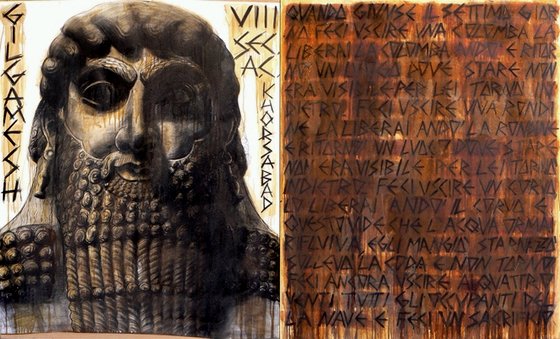 GILGAMESH
VIII
SEC
A.C
KHORSABAD
QUANDO GIUNSE IL SETTIMO GIOR
NO FECI USCIRE UNA COLOMBA LA
LIBERAI LA COLOMBA ANDÒ E RITOR
NÒ UN LUOGO DOVE STARE NON
ERA VISIBILE PER LEI TORNÒ IN
DIETRO FECI USCIRE UNA RONDI
NE LA LIBERAI ANDÒ LA RONDINE
E RITORNÒ UN LUOGO DOVE STARE
NON ERA VISIBILE PER LEI TORNÒ
INDIETRO FECI USCIRE UN CORVO
LO LIBERAI ANDÒ IL CORVO E
QUESTO VIDE CHE L'ACQUA ORMAI
RIFLUIVA EGLI MANGIÒ STARNAZZÒ
SOLLEVÒ LA CODA E NON TORNÒ
FECI ANCORA USCIRE AI QUATTRO
VENTI TUTTI GLI OCCUPANTI DEL
LA NAVE E FECI UN SACRIFICIO